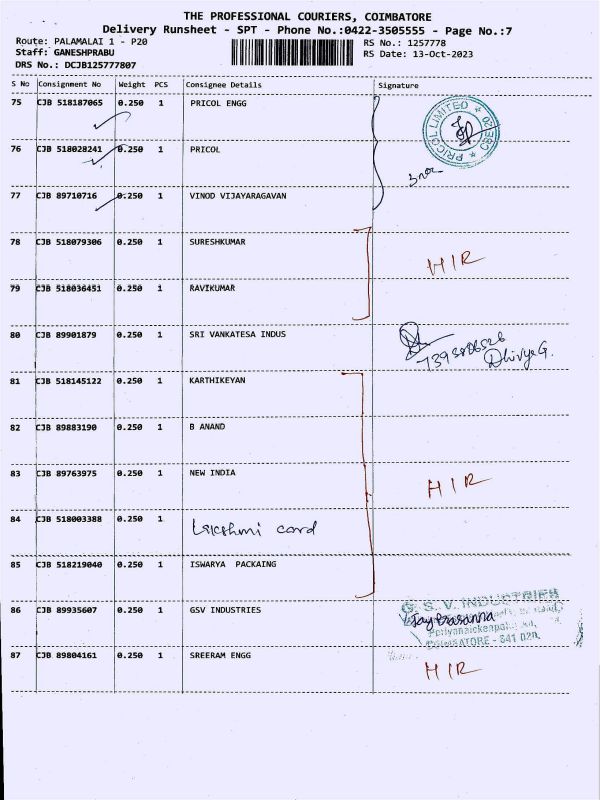 THE PROFESSIONAL COURIERS, COIMBATORE
Delivery Runsheet - SPT - Phone No.:0422-3505555 - Page No.:7
Route: PALAMALAI 1 - P20 RS No.: 1257778
Staff: GANESHPRABU RS Date: 13-Oct-2023
DRS No.: DCJB125777807
S No Consignment No Weight PCS Consignee Details Signature
75 CJB 518187065 0.250 1 PRICOL ENGG
PRICOL LIMITED
76 CJB 518028241 0.250 1 PRICOL
77 CJB 89710716 0.250 1 VINOD VIJAYARAGAVAN
78 CJB 518079306 0.250 1 SURESHKUMAR
HIR
79 CJB 518036451 0.250 1 RAVIKUMAR
80 CJB 89901879 0.250 1 SRI VANKATESA INDUS
Dhivya G.
81 CJB 518145122 0.250 1 KARTHIKEYAN
82 CJB 89883190 0.250 1 B ANAND
83 CJB 89763975 0.250 1 NEW INDIA
HIR
84 CJB 518003388 0.250 1 Lakshmi card
85 CJB 518219040 0.250 1 ISWARYA PACKAING
86 CJB 89935607 0.250 1 GSV INDUSTRIES
G. S. V. INDUSTRIES
Jayprasanna
COIMBATORE - 641 020.
87 CJB 89804161 0.250 1 SREERAM ENGG
HIR